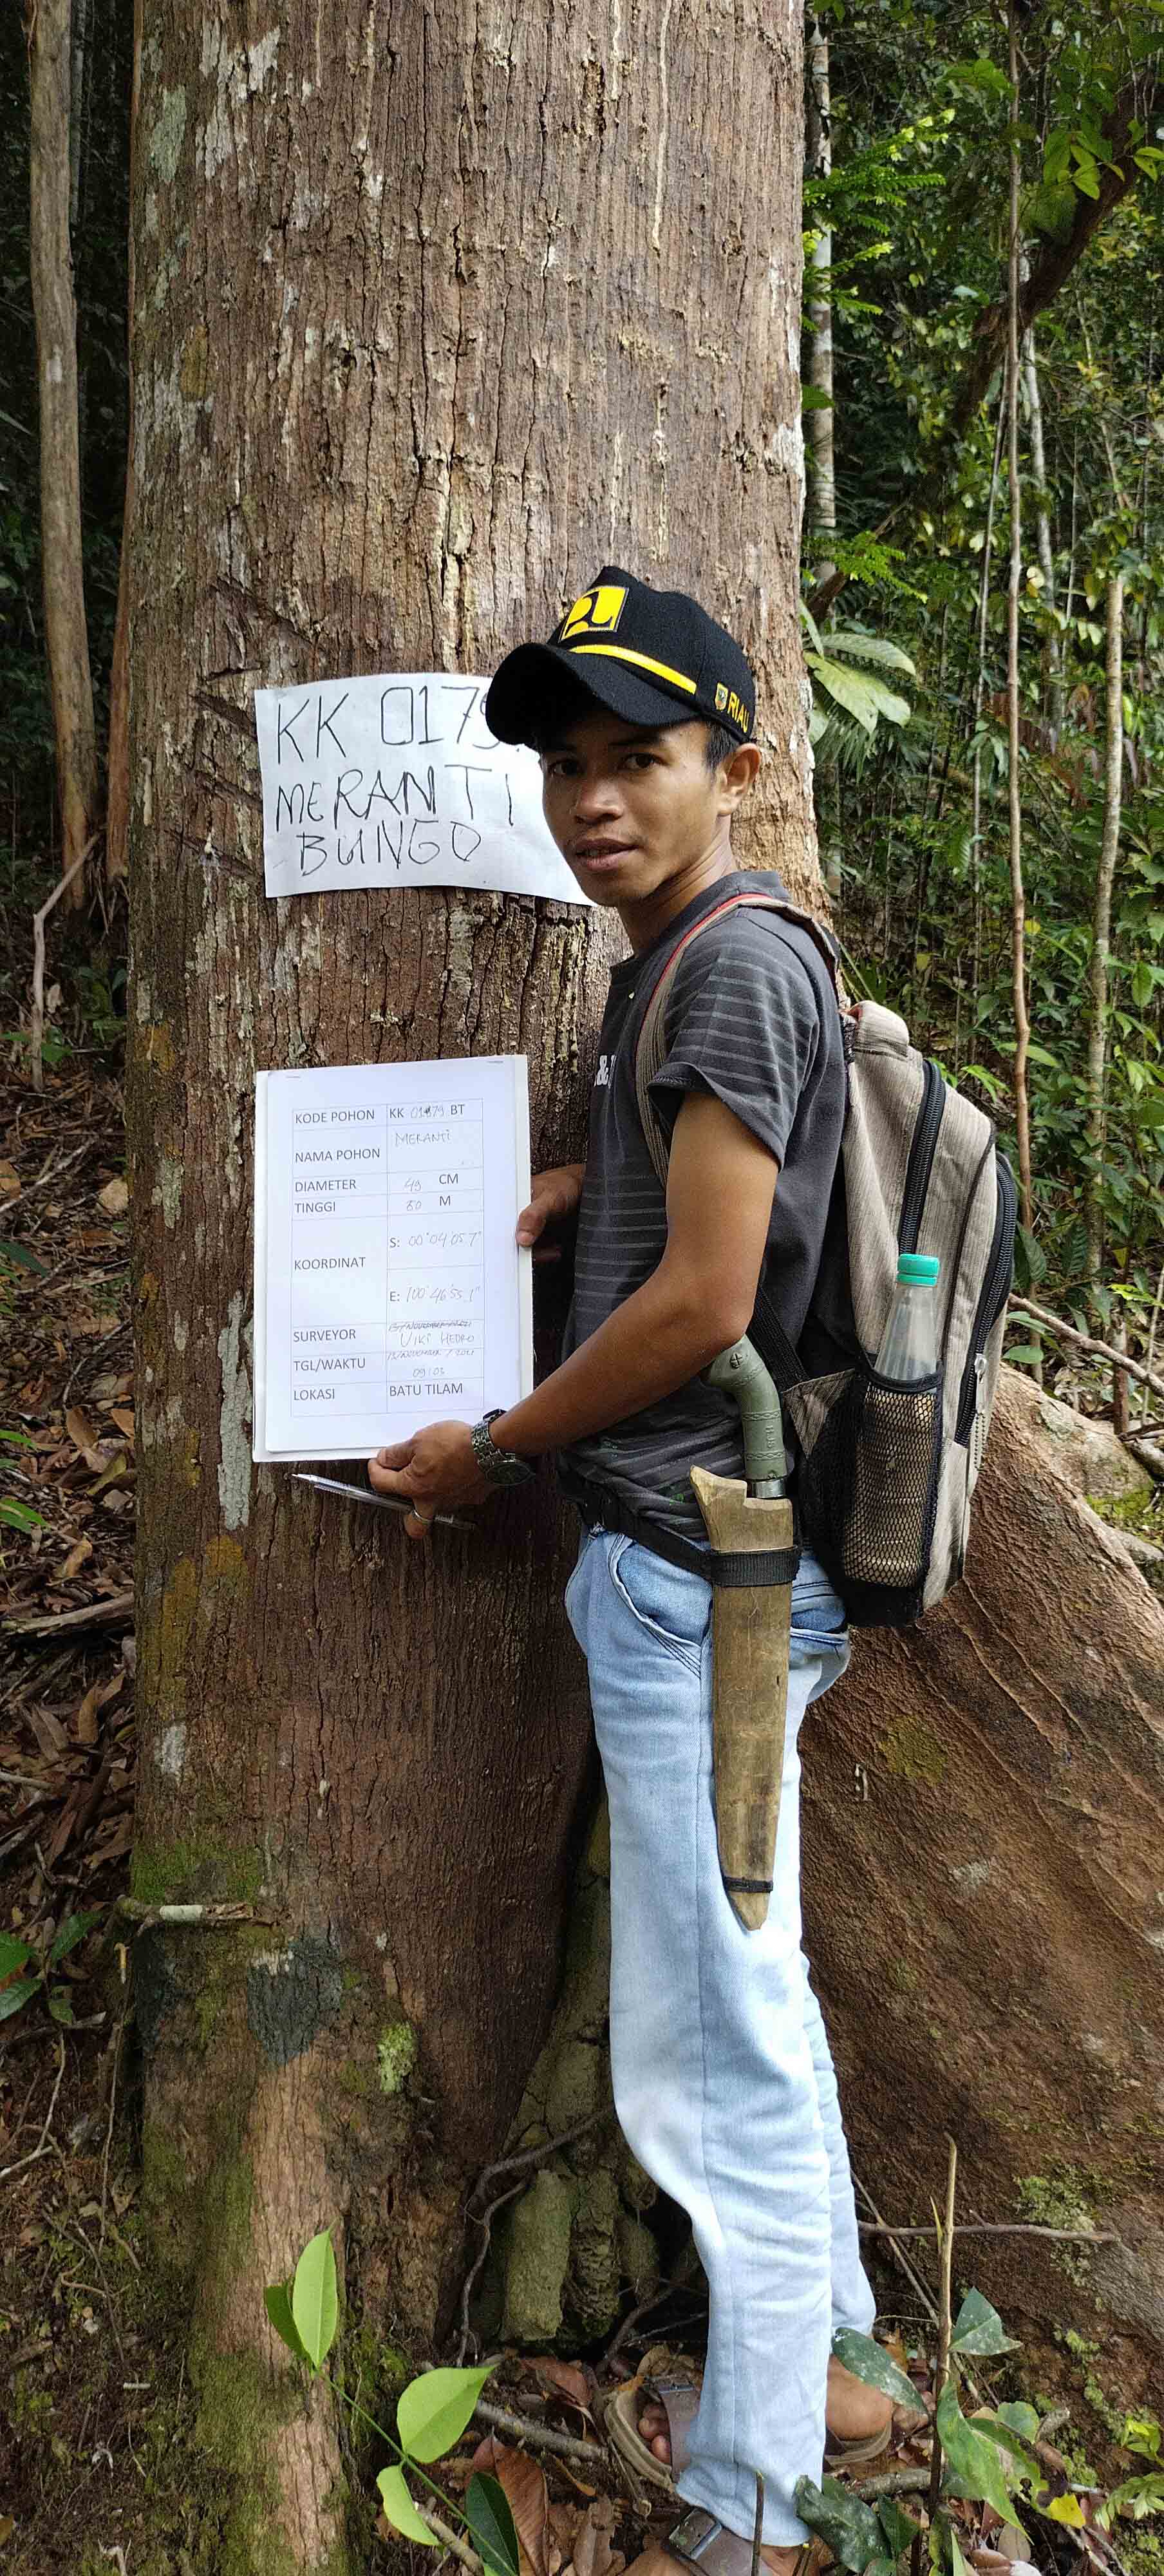 KK 0179
MERANTI
BUNGO
RIAU
KODE POHON KK 01479 BT
NAMA POHON MERANTI
DIAMETER 49 CM
TINGGI 80 M
KOORDINAT
S: 00°04'05.7"
E: 100°46'55.1"
SURVEYOR VIKI HEDRO
TGL/WAKTU
09:03
LOKASI BATU TILAM